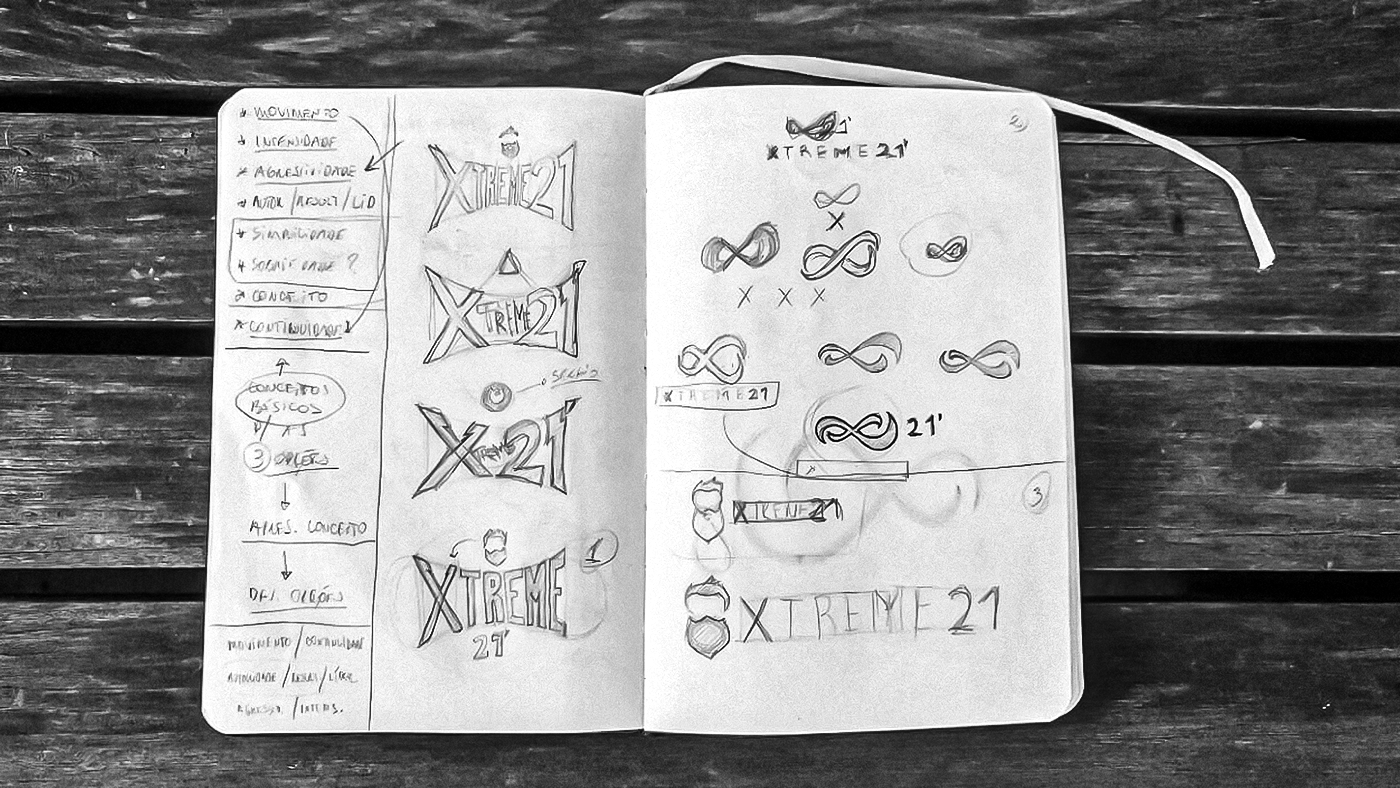 * MOVIMENTO
* INTENSIDADE
* AGRESSIVIDADE
* AUTOR /RESULT/LID
* SIMBILIDADE
?
* CONCEITO
* CONTINUIDADE
CONCEITOS
BÁSICOS
P/ AS
3 OPÇÕES
APRES. CONCEITO
OPÇÕES
MOVIMENTO / CONTINUIDADE
/ RESULT /
AGRESSIV. / INTENS.
XTREME 21
XTREME 21'
XTREME 21'
XTREME
21'
1
2
21'
XTREME 21'
X
X X X
XTREME 21
21'
3
XTREME 21
XTREME 21